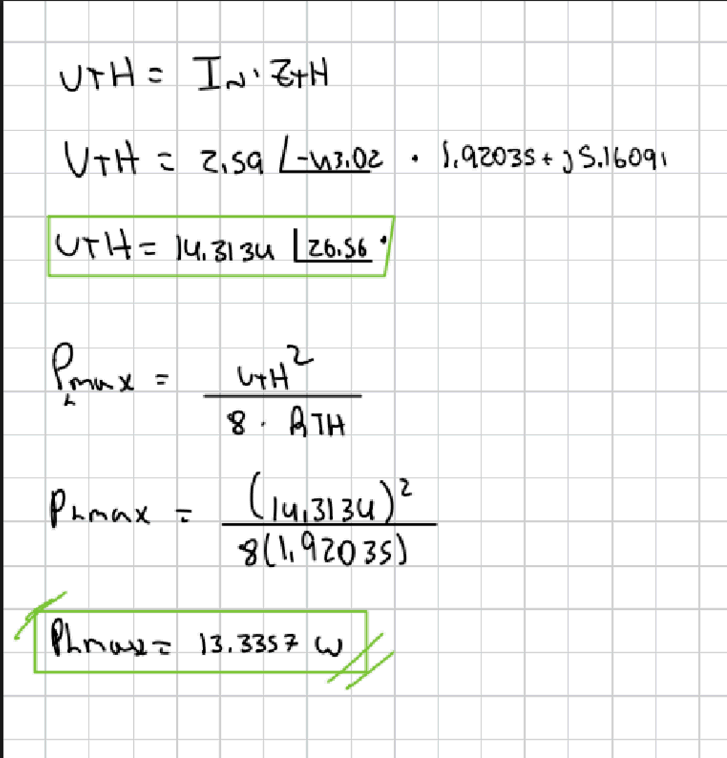 UTH = IN · ZTH
UTH = 2,59 ∠-43.02 · 1.92035 + j 5.16091
UTH = 14.3134 ∠26.56°
PLmax = UTH² / 8 · RTH
PLmax = (14,3134)² / 8(1,92035)
PLmax = 13.3357 W